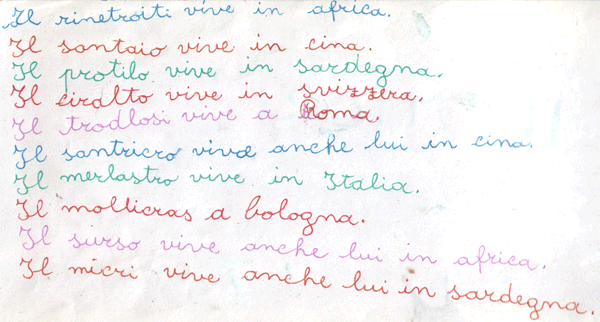 Il rinetroiti vive in africa.
Il santaio vive in cina.
Il protilo vive in sardegna.
Il ciralto vive in svizzera.
Il trodlosi vive a Roma.
Il santricro vive anche lui in cina.
Il merlastro vive in Italia.
Il mollicras a bologna.
Il surso vive anche lui in africa.
Il micri vive anche lui in sardegna.